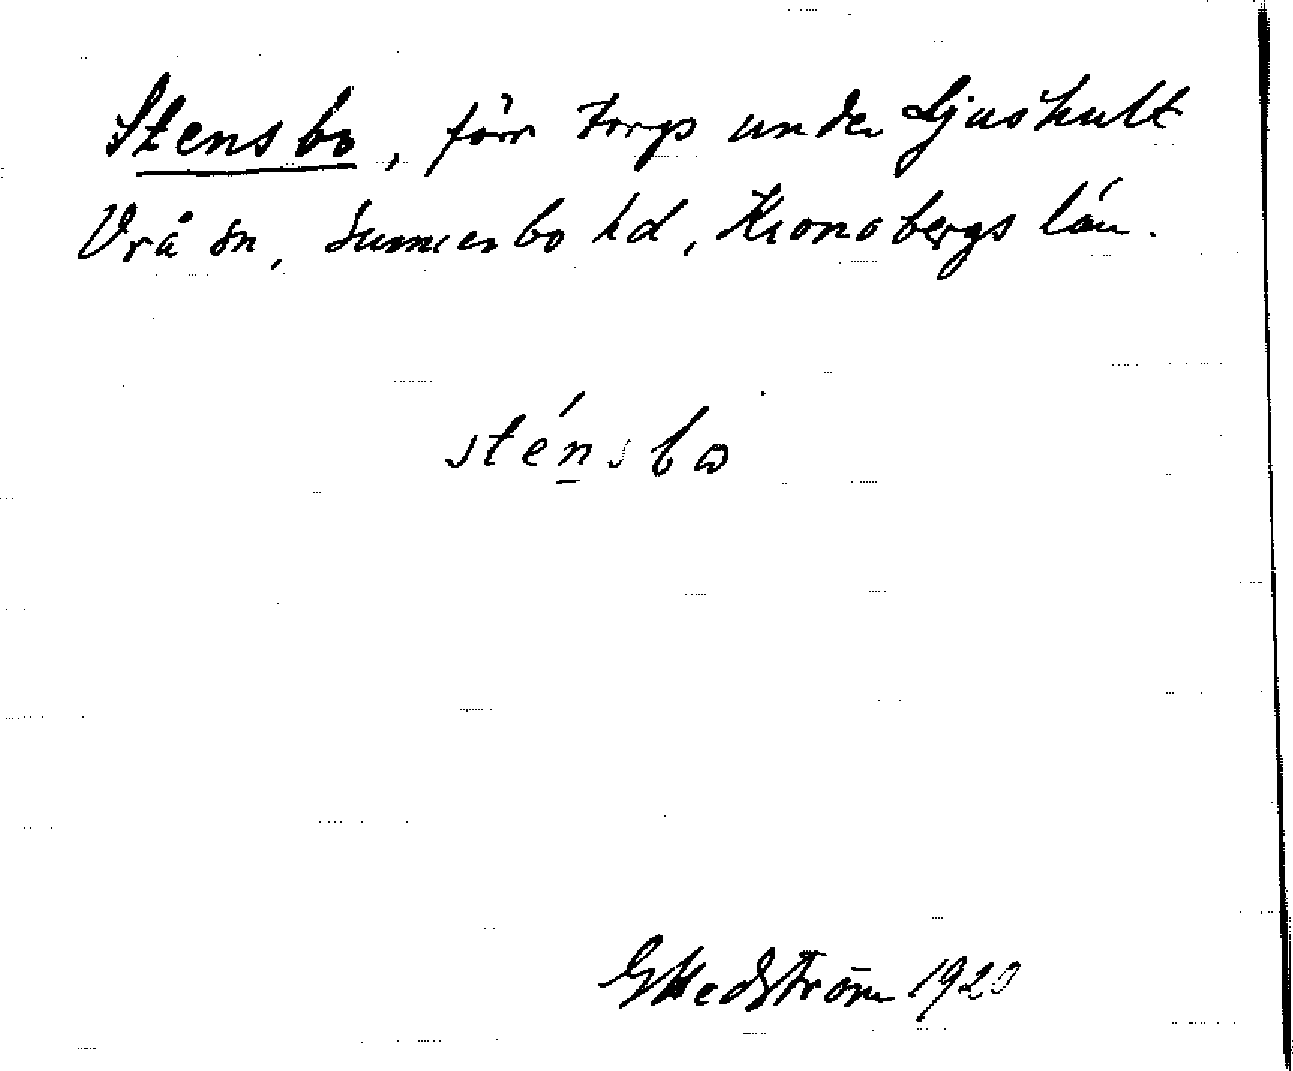 Stensbo, förr torp under Ljushult
Vrå sn, Sunnerbo hd, Kronobergs län.
sténsbω
G Hedström 1920